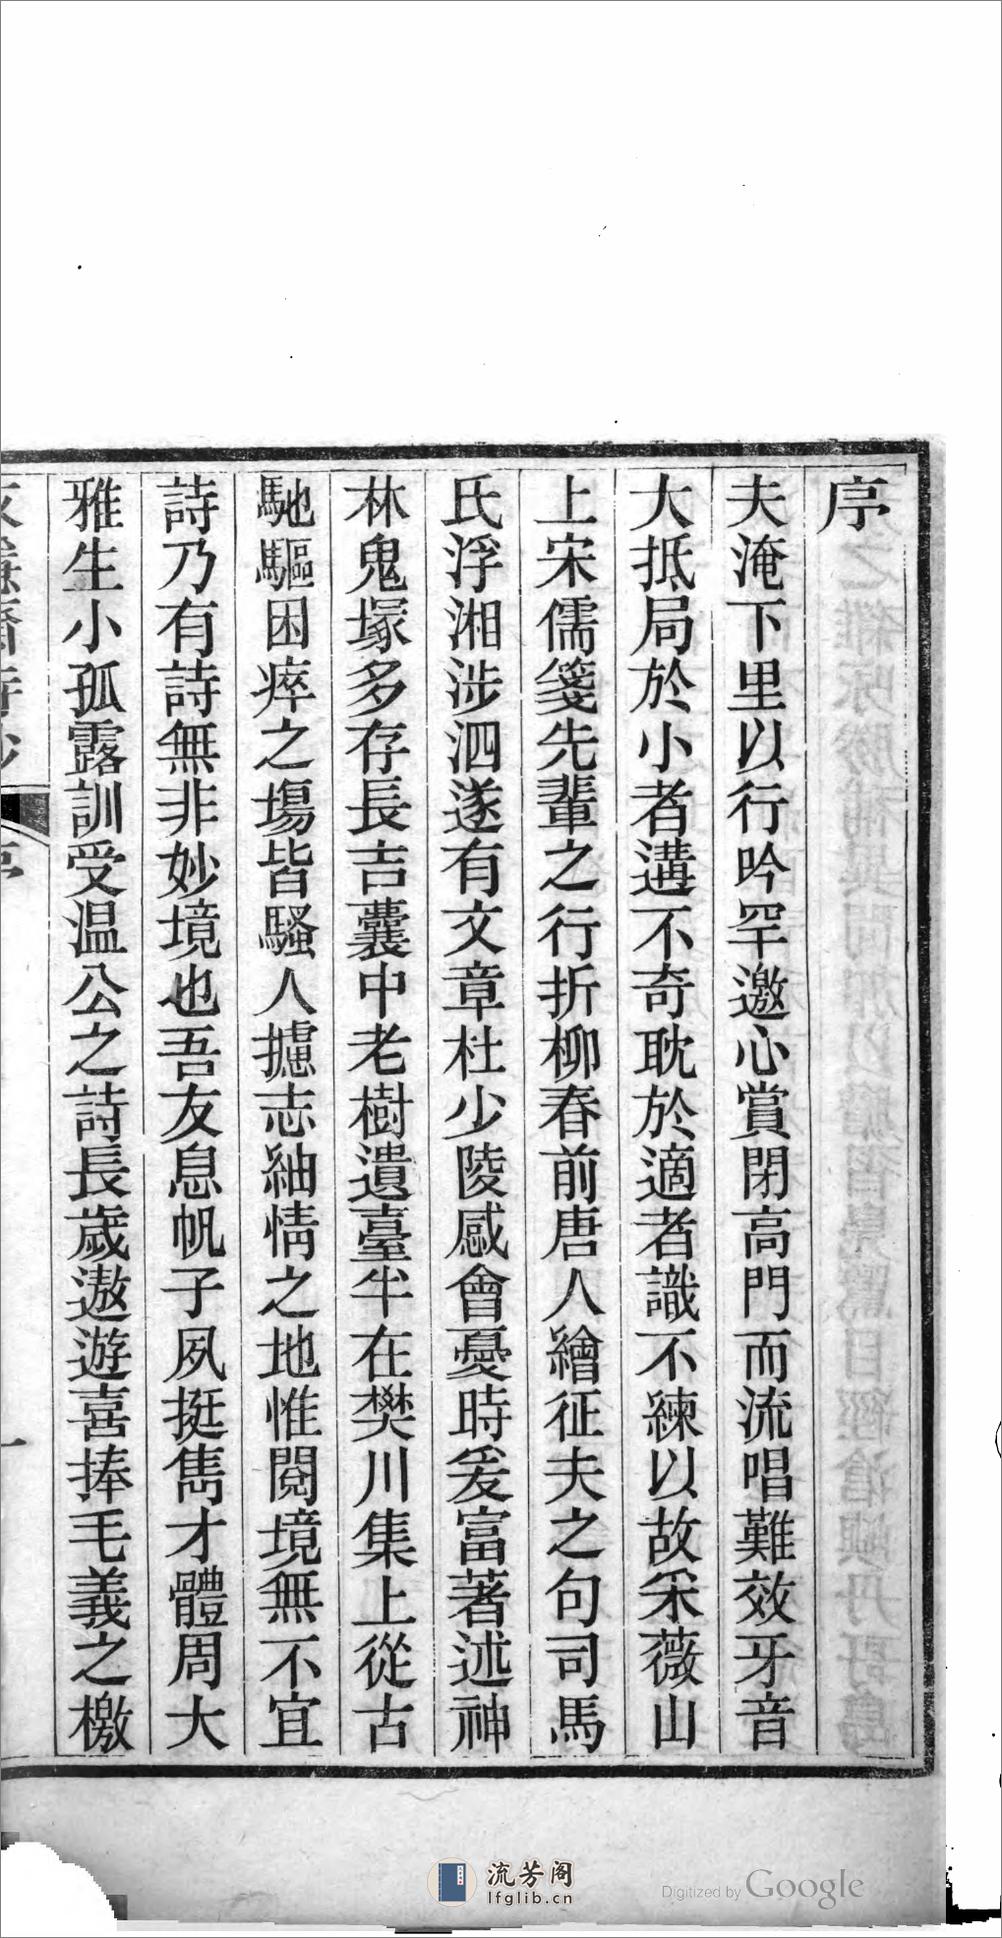 序
夫淹下里以行吟罕邀心賞閉高門而流唱難效牙音
大抵局於小者遘不奇耽於適者識不練以故采薇山
上宋儒箋先輩之行折柳春前唐人繪征夫之句司馬
氏浮湘涉泗遂有文章杜少陵感會憂時爰富著述神
林鬼塚多存長吉囊中老樹遺臺半在樊川集上從古
馳驅困瘁之塲皆騷人攄志紬情之地惟閱境無不宜
詩乃有詩無非妙境也吾友息帆子夙挺雋才體周大
雅生小孤露訓受温公之詩長歲遨遊喜捧毛義之檄
流芳阁
lfglib.cn
Digitized by Google